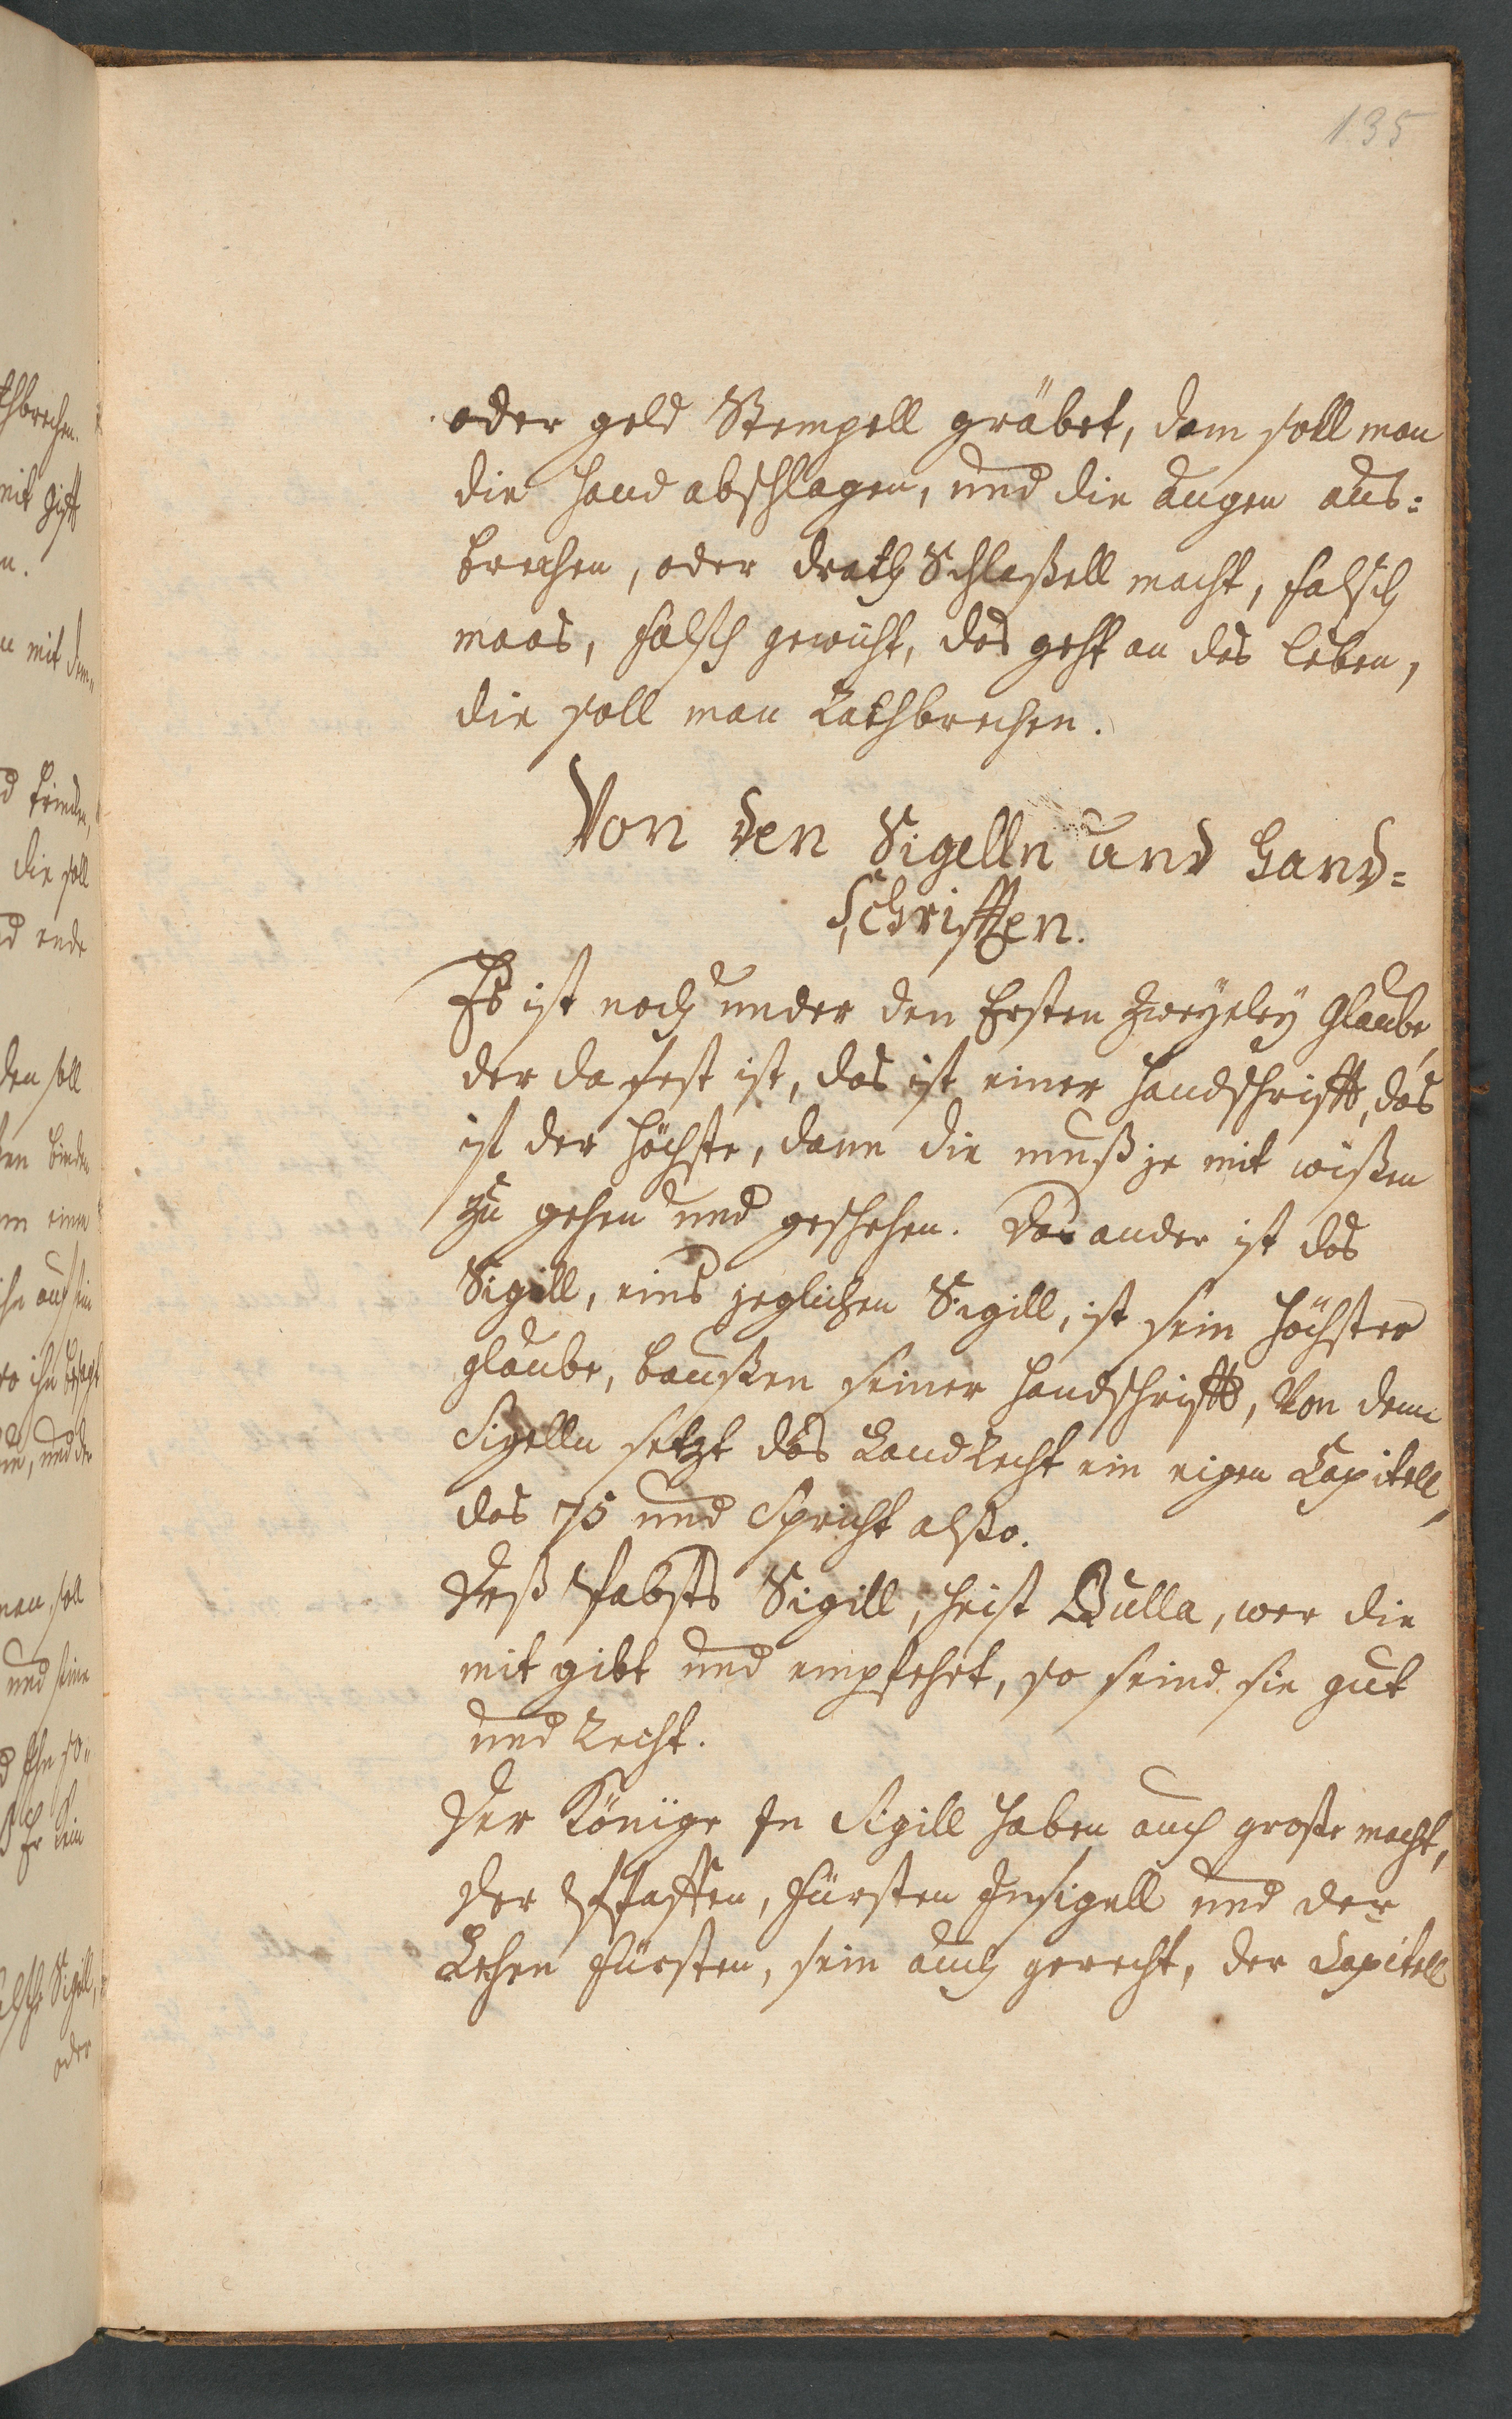 135
oder geld Stempell gräbet, dem soll man
die hand abschlagen, und die augen aus=
brechen, oder drath Schlaßell macht, falsch
maas, falsch gewicht, das geht an das leben,
die soll man Rathbrechen.
Von den Sigelln und Hand=
Schrifften.
Es ist noch under den Ersten Zweyeley Glaube,
der da fest ist, das ist einer Handschrifft, das
ist der höchste, dann die muß je mit wißen
zu gehen und geschehen. Das ander ist das
Sigill, eins jeglichen Sigill, ist sein höchster
glaube, baußen seiner handschrifft, Von denn
Sigelln setzt das LandRecht ein eigen Capitell,
das 75 und Spricht also.
Deß Pabsts Sigill, heist Bulla, wer die
mit gibt und empfehet, so seind sie gut
und Recht.
Der Könige In Sigill haben auch große macht,
der Pfaffen, fürsten Insigell und der
Lehen fürsten, sein auch gerecht, der Capitell